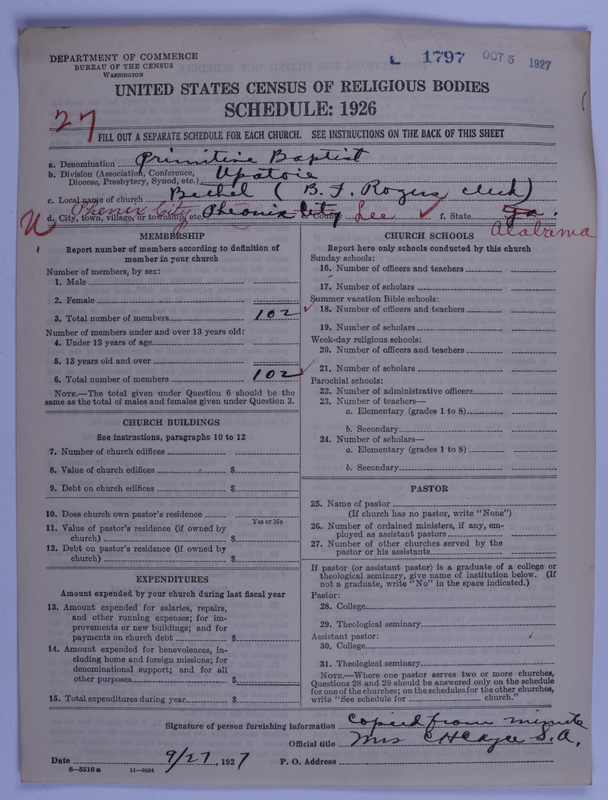 DEPARTMENT OF COMMERCE
BUREAU OF THE CENSUS
WASHINGTON
L 1797 OCT 5 1927
UNITED STATES CENSUS OF RELIGIOUS BODIES
SCHEDULE: 1926
27
FILL OUT A SEPARATE SCHEDULE FOR EACH CHURCH. SEE INSTRUCTIONS ON THE BACK OF THIS SHEET
a. Denomination Primitive Baptist
b. Division (Association, Conference, Diocese, Presbytery, Synod, etc.) Upatoie
c. Local name of church Bethel (B. F. Rogers clerk)
Phenix City
d. City, town, village, or township, etc. Pheonix City e. County Lee f. State Ga.
Alabama
MEMBERSHIP
Report number of members according to definition of
member in your church
Number of members, by sex:
1. Male
2. Female
3. Total number of members 102
Number of members under and over 13 years old:
4. Under 13 years of age
5. 13 years old and over
6. Total number of members 102
NOTE.—The total given under Question 6 should be the
same as the total of males and females given under Question 3.
CHURCH BUILDINGS
See instructions, paragraphs 10 to 12
7. Number of church edifices
8. Value of church edifices $
9. Debt on church edifices $
10. Does church own pastor's residence
Yes or No
11. Value of pastor's residence (if owned by
church) $
12. Debt on pastor's residence (if owned by
church) $
EXPENDITURES
Amount expended by your church during last fiscal year
13. Amount expended for salaries, repairs,
and other running expenses; for im-
provements or new buildings; and for
payments on church debt $
14. Amount expended for benevolences, in-
cluding home and foreign missions; for
denominational support; and for all
other purposes $
15. Total expenditures during year $
CHURCH SCHOOLS
Report here only schools conducted by this church
Sunday schools:
16. Number of officers and teachers
17. Number of scholars
Summer vacation Bible schools:
18. Number of officers and teachers
19. Number of scholars
Week-day religious schools:
20. Number of officers and teachers
21. Number of scholars
Parochial schools:
22. Number of administrative officers
23. Number of teachers—
a. Elementary (grades 1 to 8)
b. Secondary
24. Number of scholars—
a. Elementary (grades 1 to 8)
b. Secondary
PASTOR
25. Name of pastor
(If church has no pastor, write "None")
26. Number of ordained ministers, if any, em-
ployed as assistant pastors
27. Number of other churches served by the
pastor or his assistants
If pastor (or assistant pastor) is a graduate of a college or
theological seminary, give name of institution below. (If
not a graduate, write "No" in the space indicated.)
Pastor:
28. College
29. Theological seminary
Assistant pastor:
30. College
31. Theological seminary
NOTE.—Where one pastor serves two or more churches,
Questions 28 and 29 should be answered only on the schedule
for one of the churches; on the schedules for the other churches,
write "See schedule for church."
Signature of person furnishing information Copied from minute
Official title Mrs S. A.
Date 9/27, 1927 P. O. Address
6—5518 a 11—9024